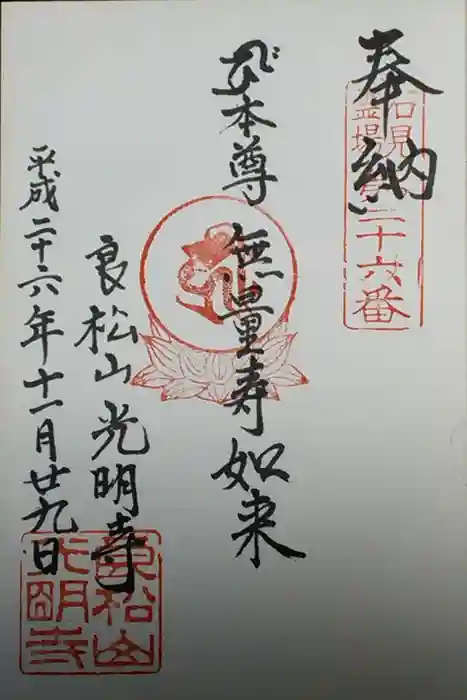 奉納
石見
霊場第二十六番
本尊 無量寿如来
良松山光明寺
平成二十六年十一月廿九日
光明寺